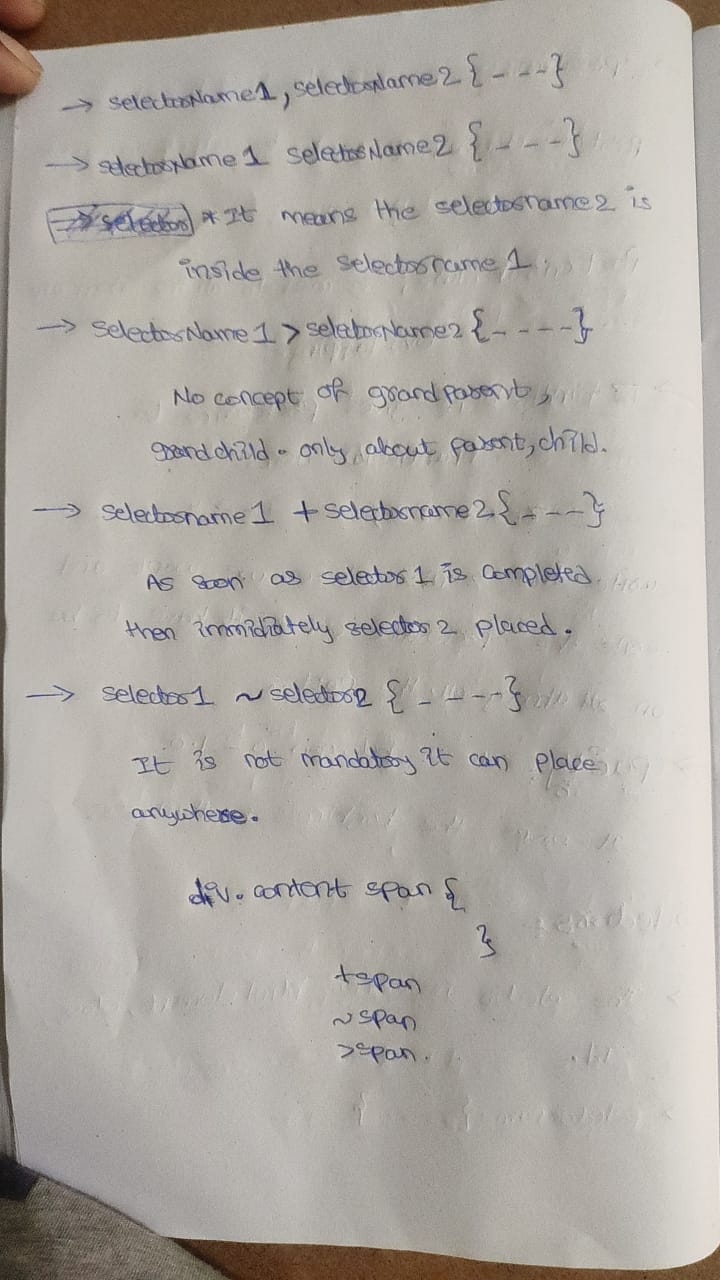 → selectorName1, selectorName2 {----}
→ selectorName1 selectorName2 {----}
→ selector * It means the selectorname2 is
inside the selectorname1
→ selectorName1 > selectorName2 {----}
No concept of grandparent,
grandchild. only about parent, child.
→ selectorname1 + selectorname2 {----}
As soon as selector 1 is completed
then immidiately selector 2 placed.
→ selector1 ~ selector2 {----}
It is not mandatory it can place
anywhere.
div. content span {
}
+span
~span
>span.